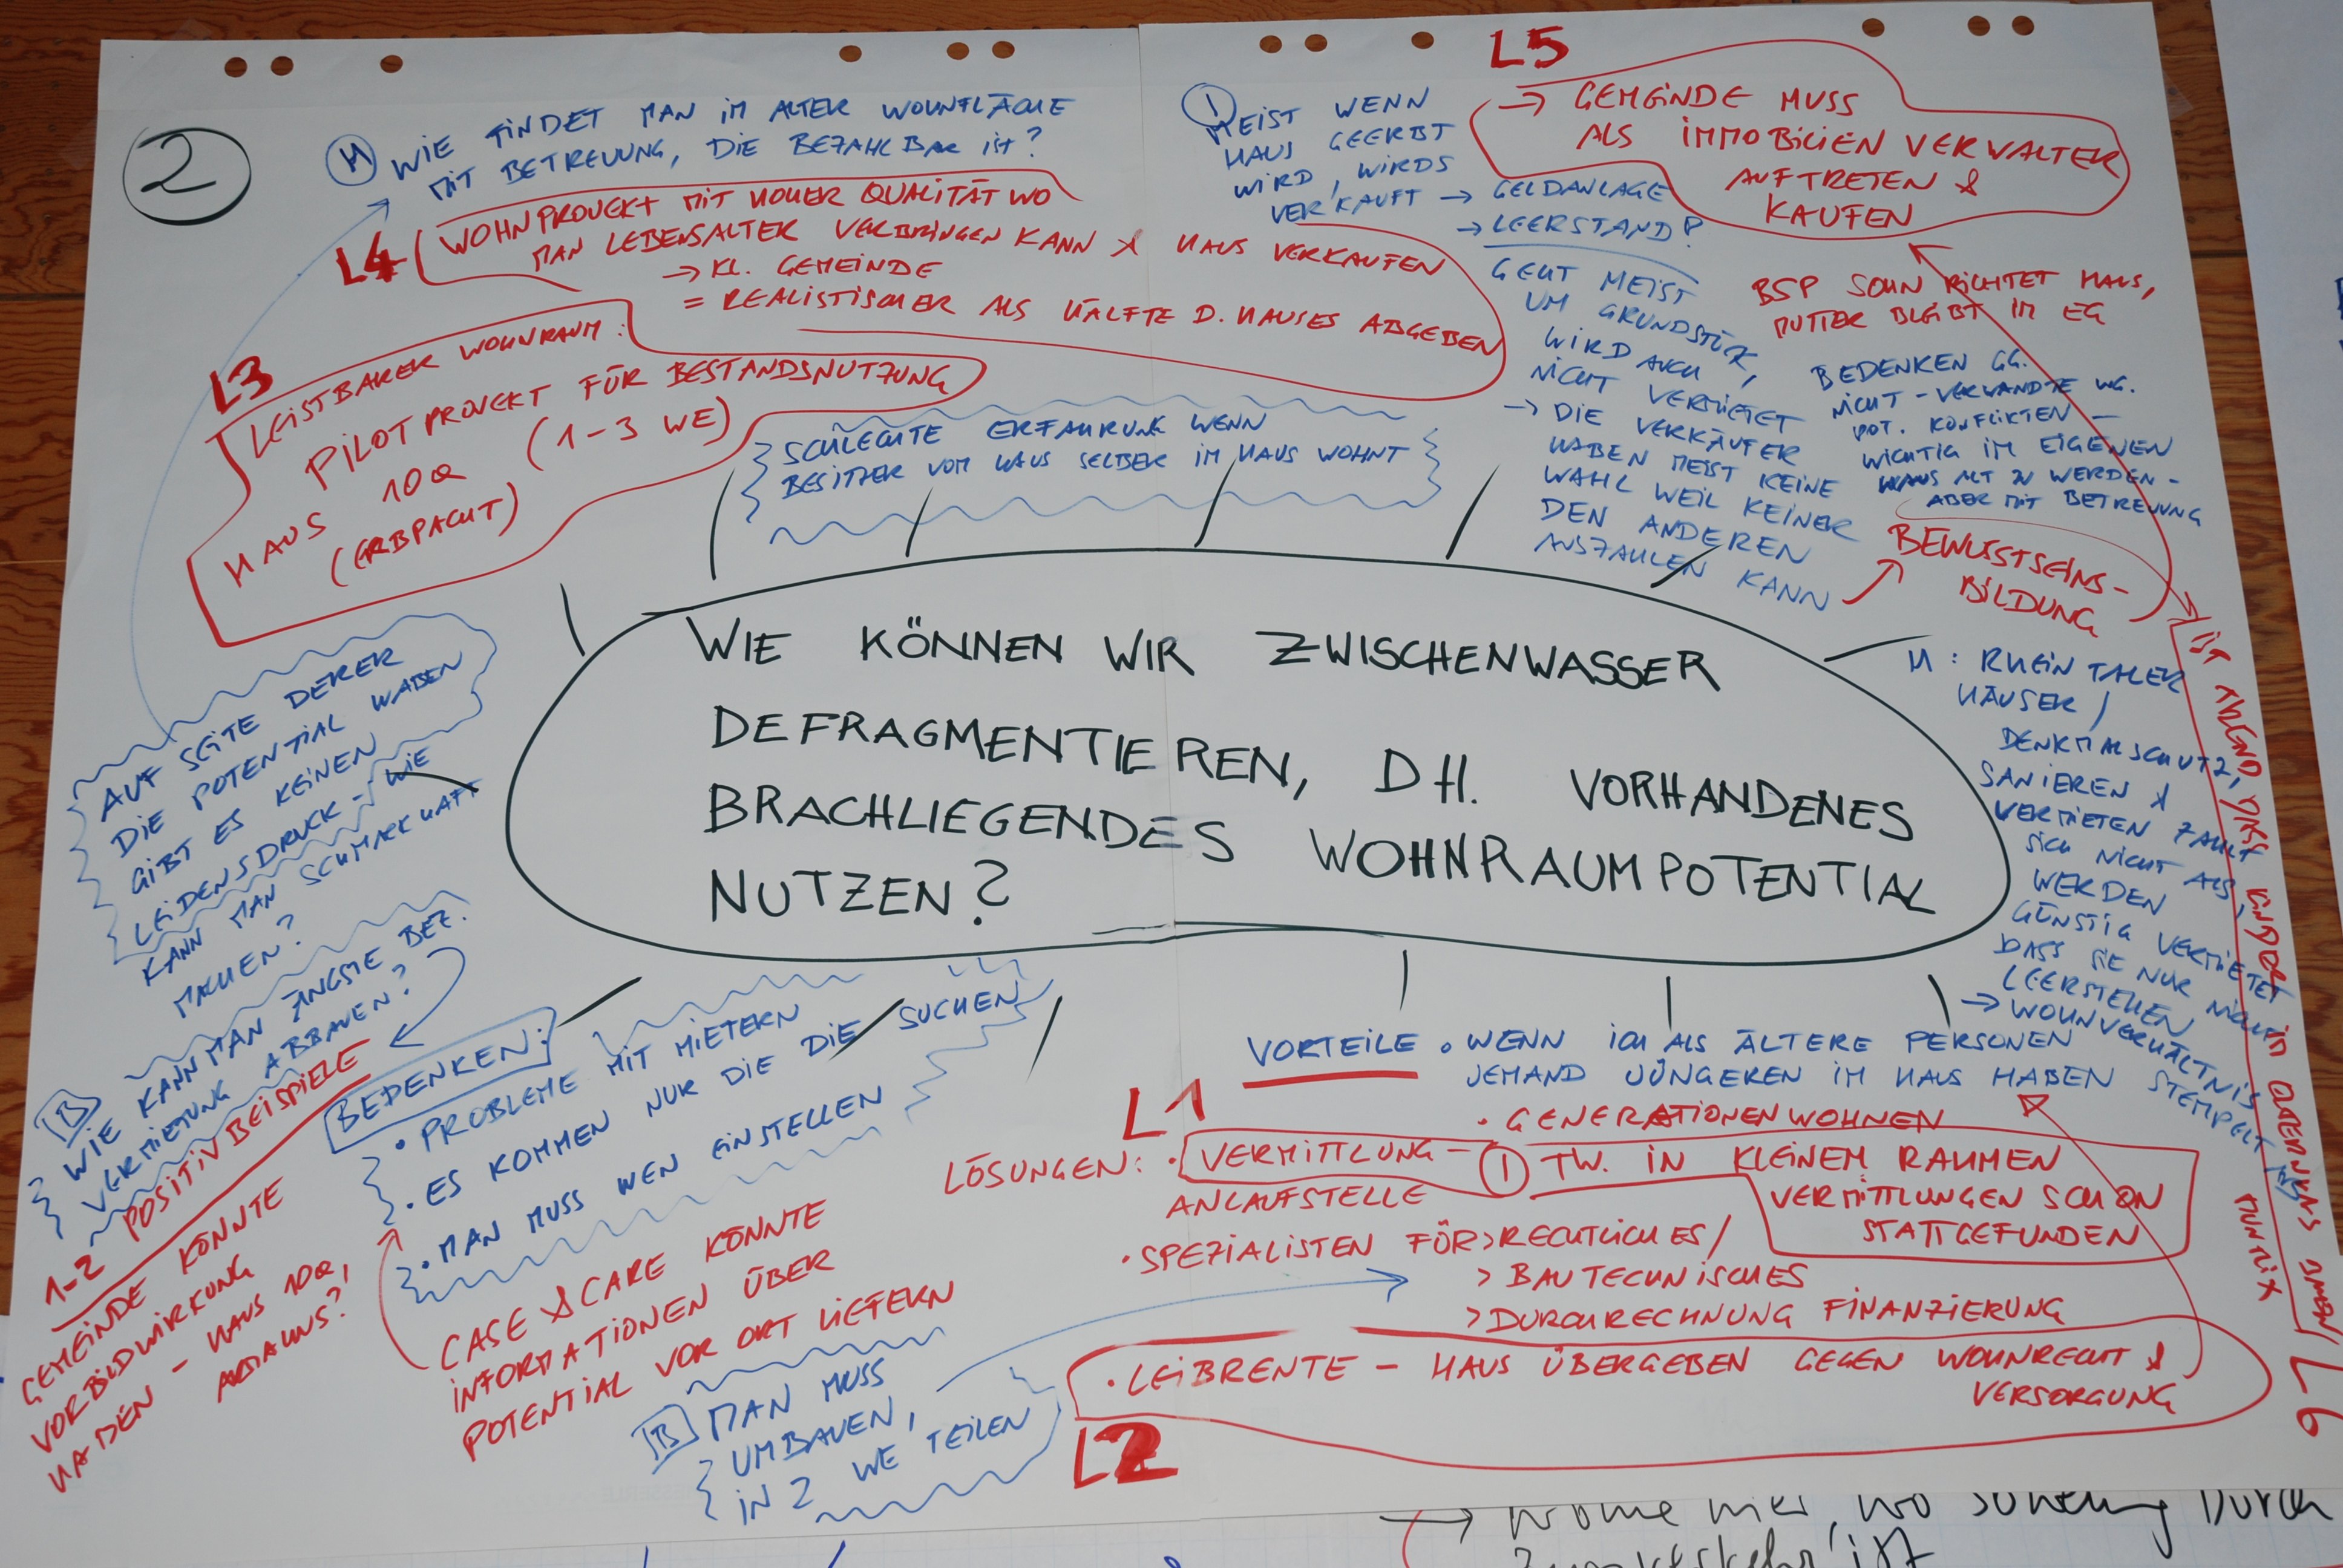 2
H WIE FINDET MAN IM ALTER WOHNFLÄCHE
MIT BETREUUNG, DIE BEZAHLBAR IST?
L4 WOHNPROJEKT MIT HOHER QUALITÄT WO
MAN LEBENSALTER VERBRINGEN KANN & HAUS VERKAUFEN
→ KL. GEMEINDE
= REALISTISCHER ALS HÄLFTE D. HAUSES ABGEBEN
L3
LEISTBARER WOHNRAUM:
PILOTPROJEKT FÜR BESTANDSNUTZUNG
HAUS 10a (1-3 WE)
(ERBPACHT)
SCHLECHTE ERFAHRUNG WENN
BESITZER VOM HAUS SELBER IM HAUS WOHNT
I
MEIST WENN
HAUS GEERBT
WIRD, WIRDS
VERKAUFT → GELDANLAGE
→ LEERSTAND?
GEHT MEIST
UM GRUNDSTÜCK,
WIRD AUCH
NICHT VERMIETET
→ DIE VERKÄUFER
HABEN MEIST KEINE
WAHL WEIL KEINER
DEN ANDEREN
AUSZAHLEN KANN
L5
→ GEMEINDE MUSS
ALS IMMOBILIENVERWALTER
AUFTRETEN &
KAUFEN
BSP SOHN RICHTET HAUS,
MUTTER BLEIBT IM EG
BEDENKEN GG.
NICHT-VERWANDTE WG.
POT. KONFLIKTEN —
WICHTIG IM EIGENEN
HAUS ALT ZU WERDEN -
ABER MIT BETREUUNG
BEWUSTSEINS-
BILDUNG
WIE KÖNNEN WIR ZWISCHENWASSER
DEFRAGMENTIEREN, DH. VORHANDENES
BRACHLIEGENDES WOHNRAUMPOTENTIAL
NUTZEN?
H: RHEINTALER
HÄUSER /
DENKMALSCHUTZ,
SANIEREN &
VERMIETEN ZAHLT
SICH NICHT AUS,
WERDEN
GÜNSTIG VERMIETET
DASS SIE NUR NICHT
LEERSTEHEN
→ WOHNVERHÄLTNIS
STEMPELT
IST ABEND, DASS KINDER IN ELTERNHAUS
L6
AUF SEITE DERER
DIE POTENTIAL HABEN
GIBT ES KEINEN
LEIDENSDRUCK - WIE
KANN MAN SCHMACKHAFT
MACHEN?
B
WIE KANN MAN ÄNGSTE BEZ.
VERMIETUNG ABBAUEN?
1-2 POSITIVBEISPIELE
GEMEINDE KÖNNTE
VORBILDWIRKUNG
HABEN - HAUS 10a,
ARTAHUS?
BEDENKEN:
• PROBLEME MIT MIETERN
• ES KOMMEN NUR DIE DIE SUCHEN
• MAN MUSS WEN EINSTELLEN
CASE & CARE KÖNNTE
INFORMATIONEN ÜBER
POTENTIAL VOR ORT LIEFERN
B MAN MUSS
UMBAUEN,
IN 2 WE TEILEN
VORTEILE • WENN ICH ALS ÄLTERE PERSONEN
JEMAND JÜNGEREN IM HAUS HABEN
L1
• GENERATIONENWOHNEN
LÖSUNGEN: • VERMITTLUNG - I TW. IN KLEINEM RAHMEN
ANLAUFSTELLE VERMITTLUNGEN SCHON
STATTGEFUNDEN
• SPEZIALISTEN FÜR > RECHTLICHES /
> BAUTECHNISCHES
> DURCHRECHNUNG FINANZIERUNG
• LEIBRENTE - HAUS ÜBERGEBEN GEGEN WOHNRECHT &
VERSORGUNG
L2